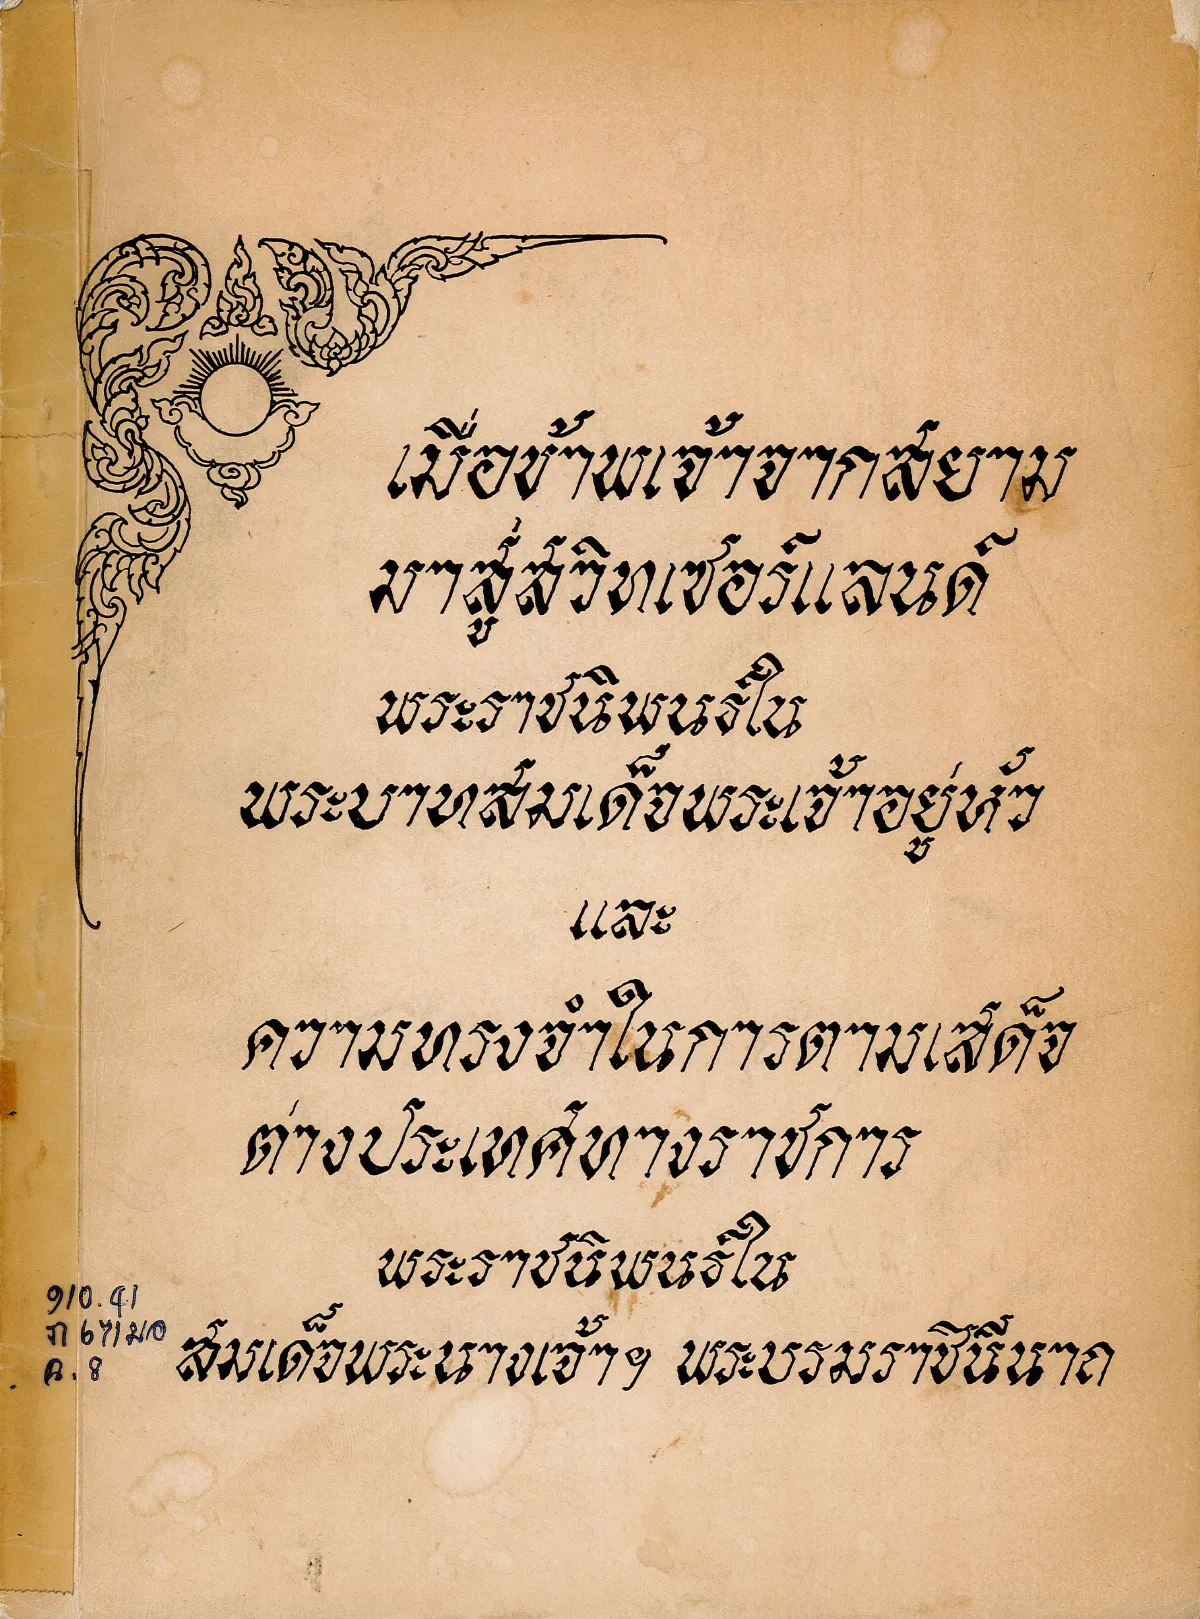 เมื่อข้าพเจ้าจากสยาม
มาสู่สวิทเซอร์แลนด์
พระราชนิพนธ์ใน
พระบาทสมเด็จพระเจ้าอยู่หัว
และ
ความทรงจำในการตามเสด็จ
ต่างประเทศทางราชการ
พระราชนิพนธ์ใน
สมเด็จพระนางเจ้าฯ พระบรมราชินีนาถ
910.41
ภ 671มอ
ฉ. 8